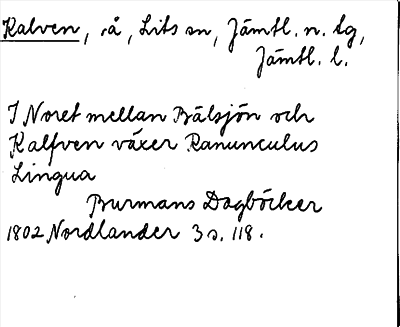 Kalven, .å, Lits sn, Jämtl. n. tg,
Jämtl. l.
I Noret mellan Bälsjön och
Kalfven växer Ranunculus
Lingua
Burmans Dagböcker
1802 Nordlander 3 s. 118.